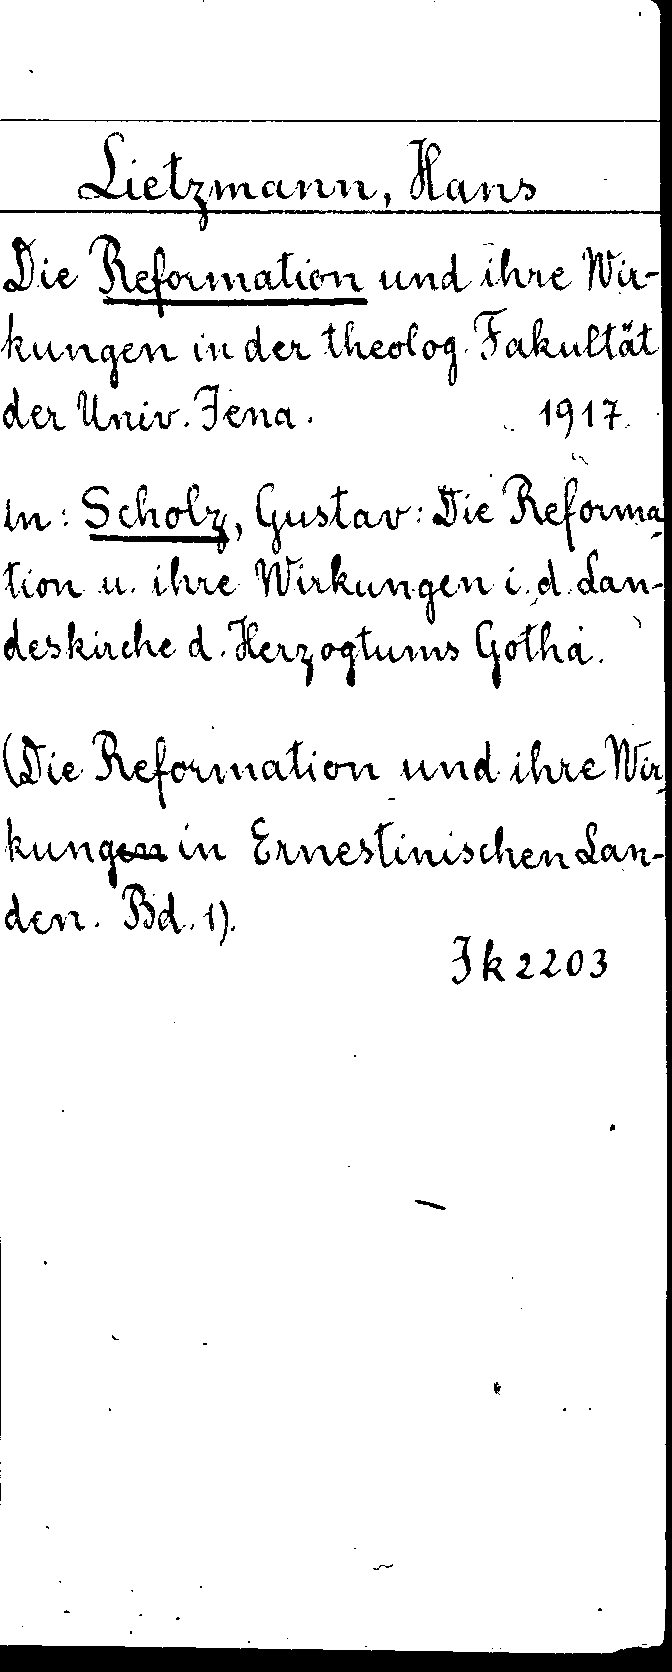 Lietzmann, Hans
Die Reformation und ihre Wir-
kungen in der theolog. Fakultät
der Univ. Jena. 1917
in: Scholz, Gustav: Die Reforma-
tion u. ihre Wirkungen i. d. Lan-
deskirche d. Herzogtums Gotha.
(Die Reformation und ihre Wir-
kungen in Ernestinischen Lan-
den. Bd. 1).
Jk 2203